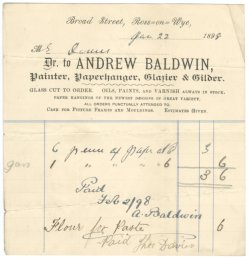 Broad Street, Ross-on-Wye,
Jan 22 1898
Mr E Davies
Dr. to ANDREW BALDWIN,
Painter, Paperhanger, Glazier & Gilder.
GLASS CUT TO ORDER. OILS, PAINTS, AND VARNISH ALWAYS IN STOCK.
PAPER HANGINGS OF THE NEWEST DESIGNS IN GREAT VARIETY.
ALL ORDERS PUNCTUALLY ATTENDED TO.
CASH FOR PICTURE FRAMES AND MOULDINGS. ESTIMATES GIVEN.
6 of paper at 3
1 " " " 6 6
3 6
Paid
Feb 2/98
A. Baldwin
Flour for Paste 6
Paid Davies